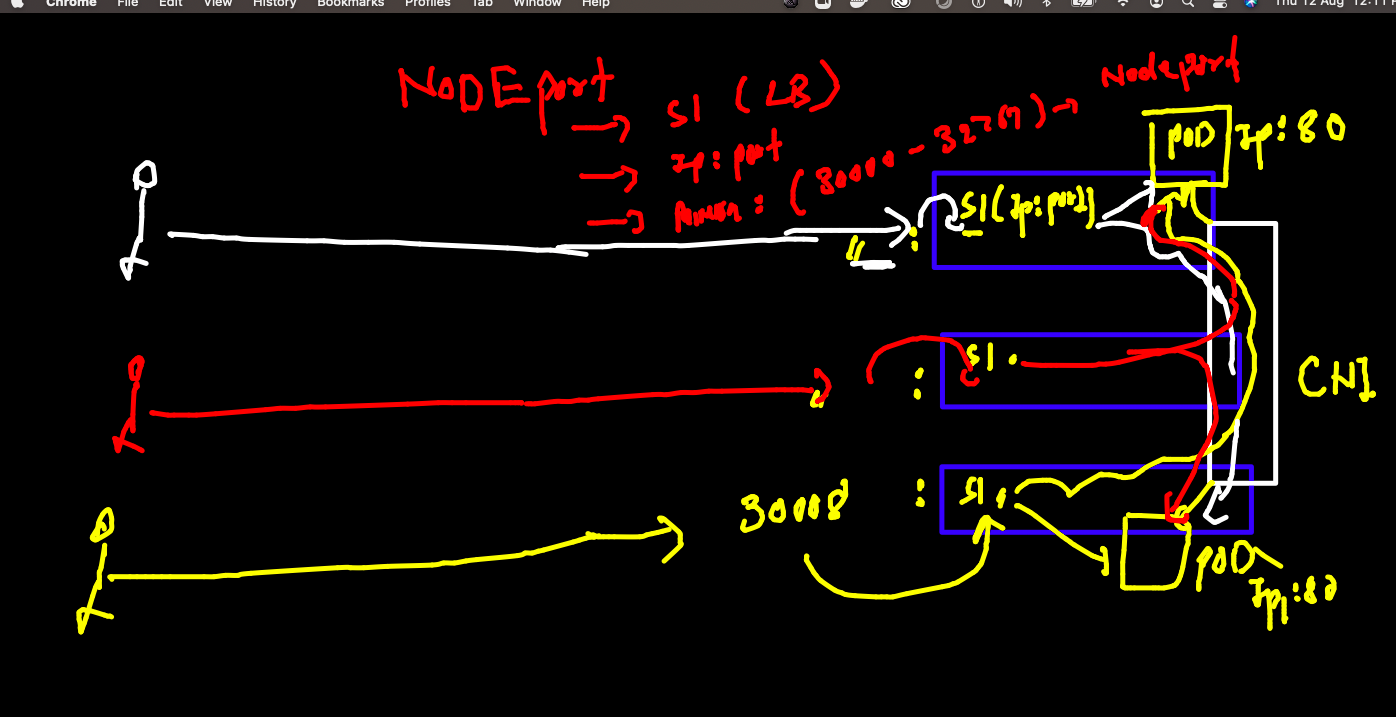 Chrome File Edit View History Bookmarks Profiles Tab Window Help Thu 12 Aug
NODEport
S1 (LB)
Ip: port
(30000 - 32767) → Nodeport
POD Ip:80
S1(Ip:port)
S1
CNI
30008 : S1
POD
Ip1:80